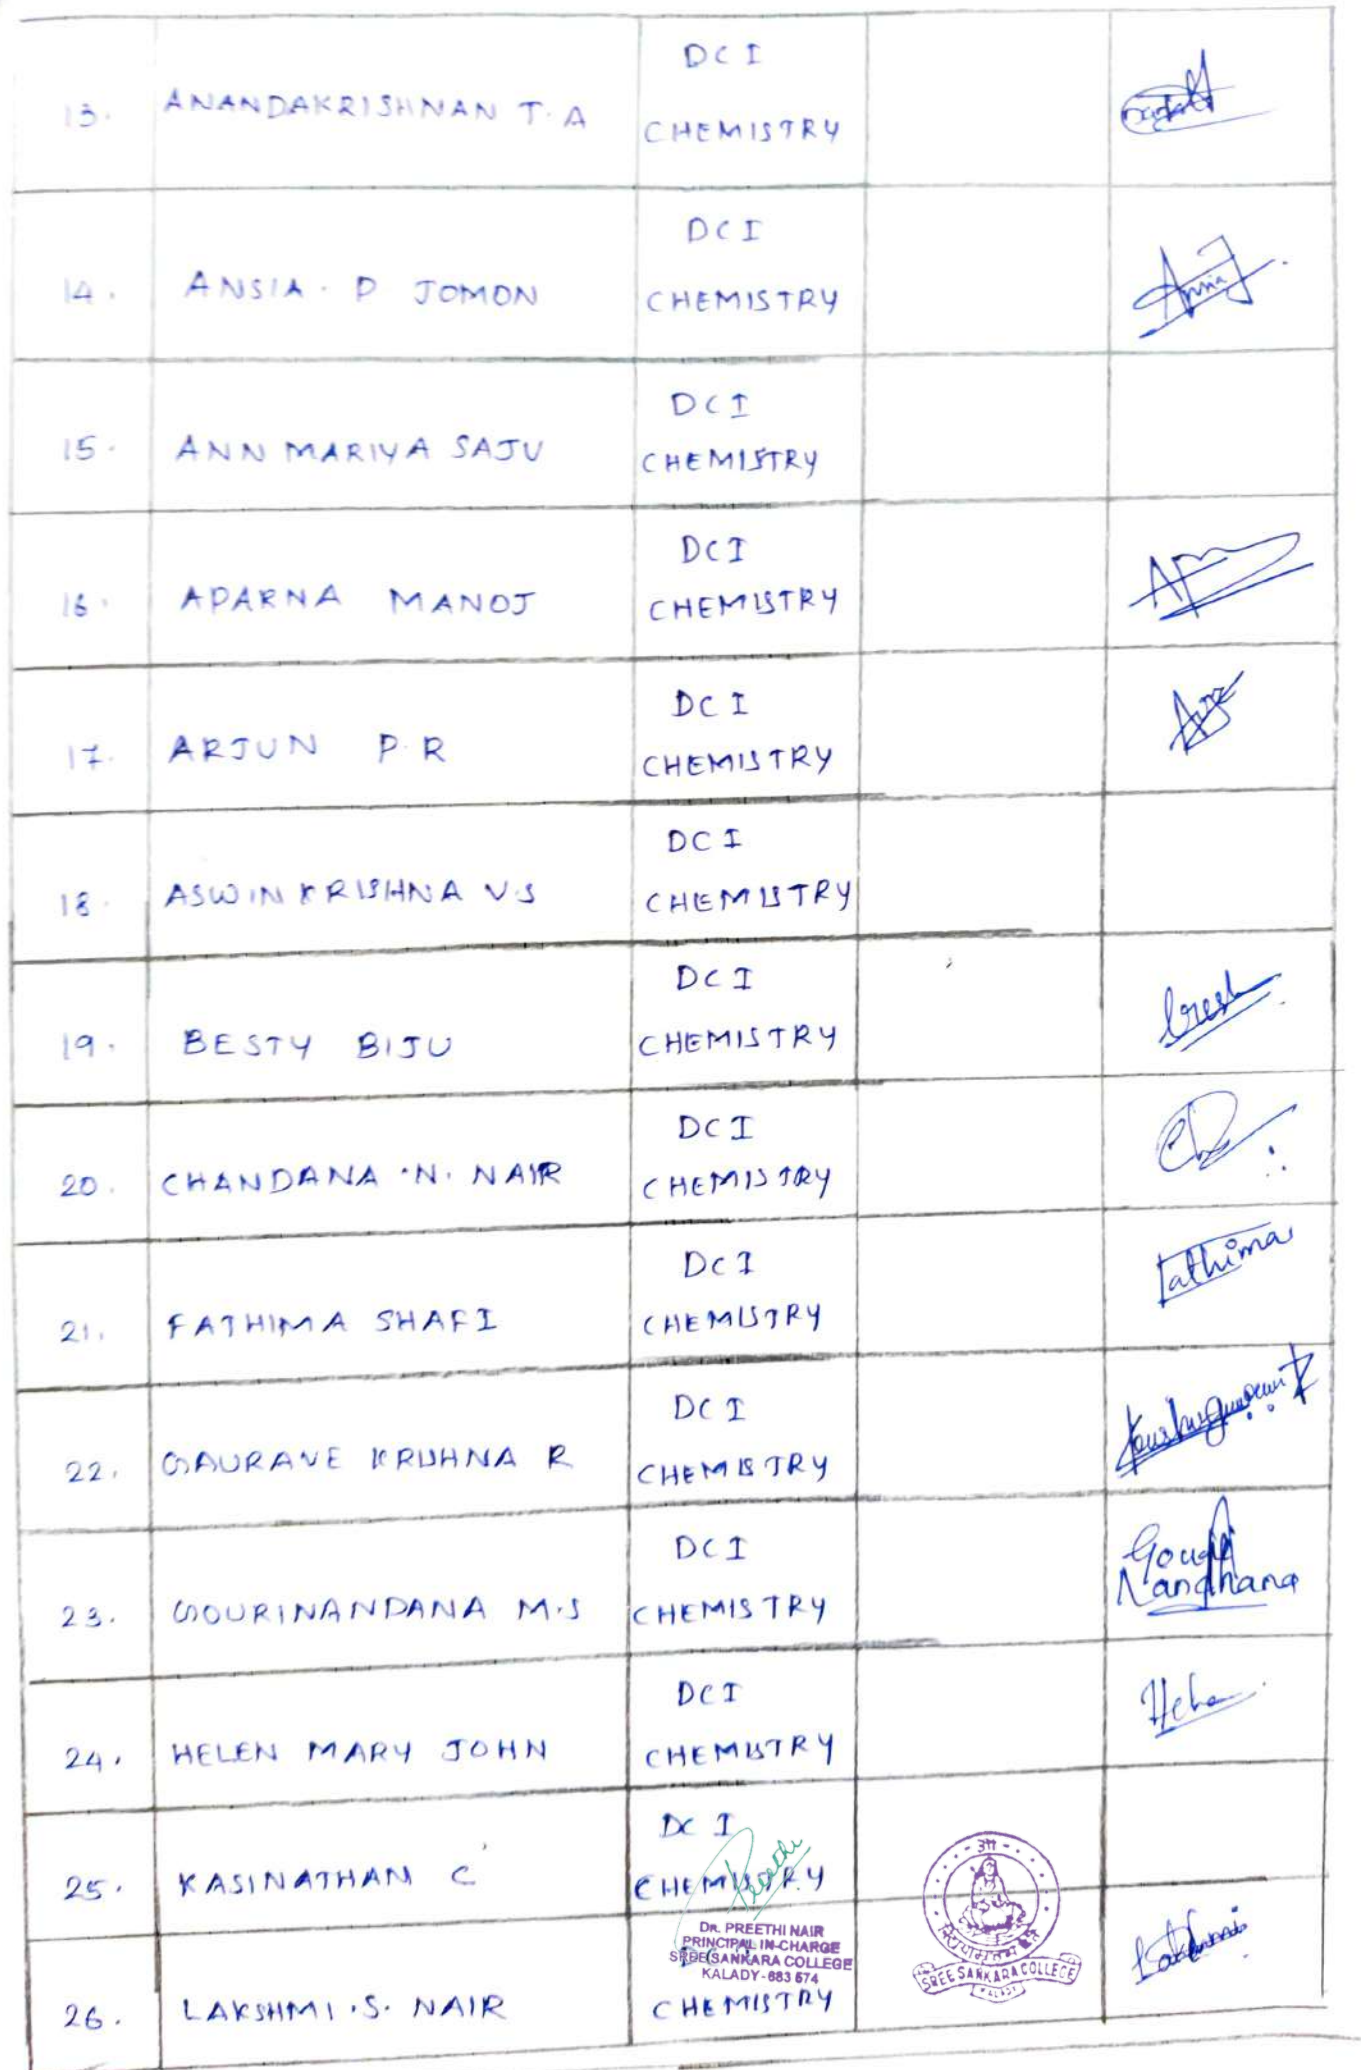 13. ANANDAKRISHNAN T.A DC I CHEMISTRY
14. ANSIA. P JOMON DC I CHEMISTRY
15. ANN MARIYA SAJU DC I CHEMISTRY
16. APARNA MANOJ DC I CHEMISTRY
17. ARJUN P.R DC I CHEMISTRY
18. ASWIN KRISHNA V.S DC I CHEMISTRY
19. BESTY BIJU DC I CHEMISTRY
20. CHANDANA .N. NAIR DC I CHEMISTRY
21. FATHIMA SHAFI DC I CHEMISTRY Fathima
22. GAURAVE KRISHNA R DC I CHEMISTRY
23. GOURINANDANA M.S DC I CHEMISTRY Gouri Nandhana
24. HELEN MARY JOHN DC I CHEMISTRY
25. KASINATHAN C DC I CHEMISTRY
26. LAKSHMI .S. NAIR DC I CHEMISTRY Lakshmi
Preethi
DR. PREETHI NAIR
PRINCIPAL IN-CHARGE
SREE SANKARA COLLEGE
KALADY-683 574
SREE SANKARA COLLEGE
KALADY